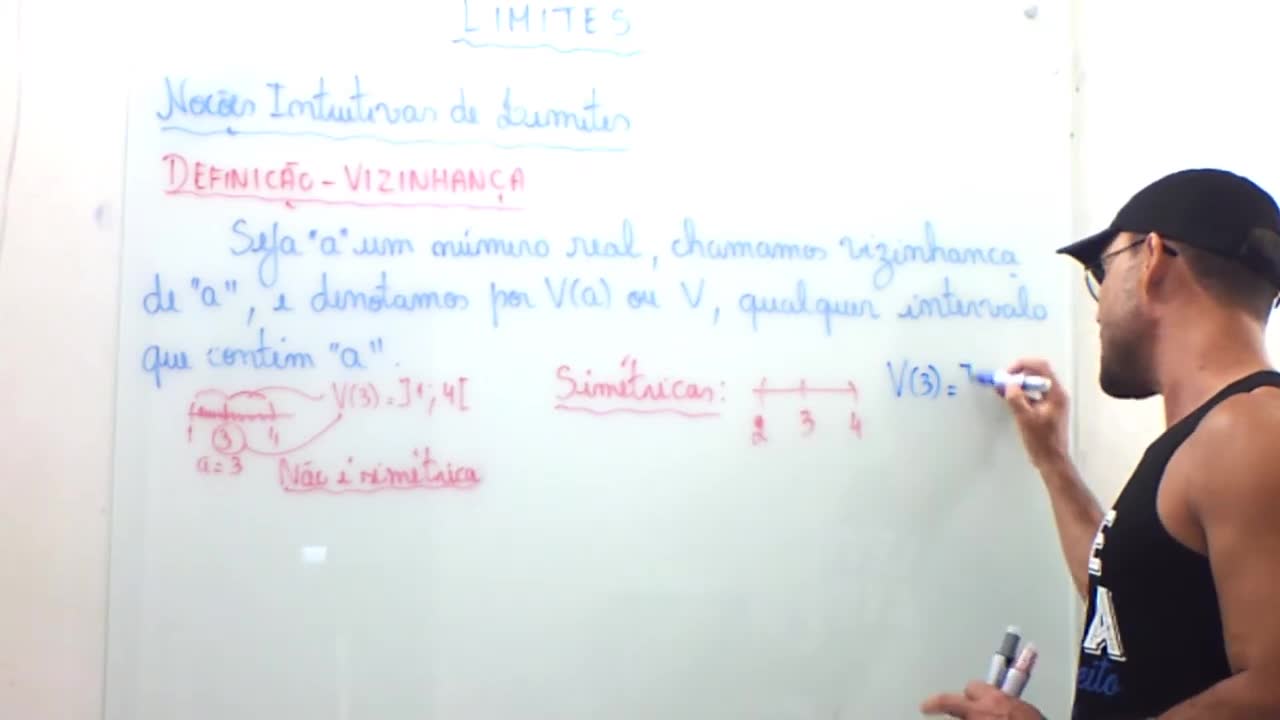 LIMITES
Noções Intuitivas de Limites
DEFINIÇÃO - VIZINHANÇA
Seja "a" um número real, chamamos vizinhança
de "a", e denotamos por V(a) ou V, qualquer intervalo
que contém "a".
V(3) = ]1; 4[
1 3 4
a = 3
Não é simétrica
Simétricas:
2 3 4
V(3) = ]
E
A
eito